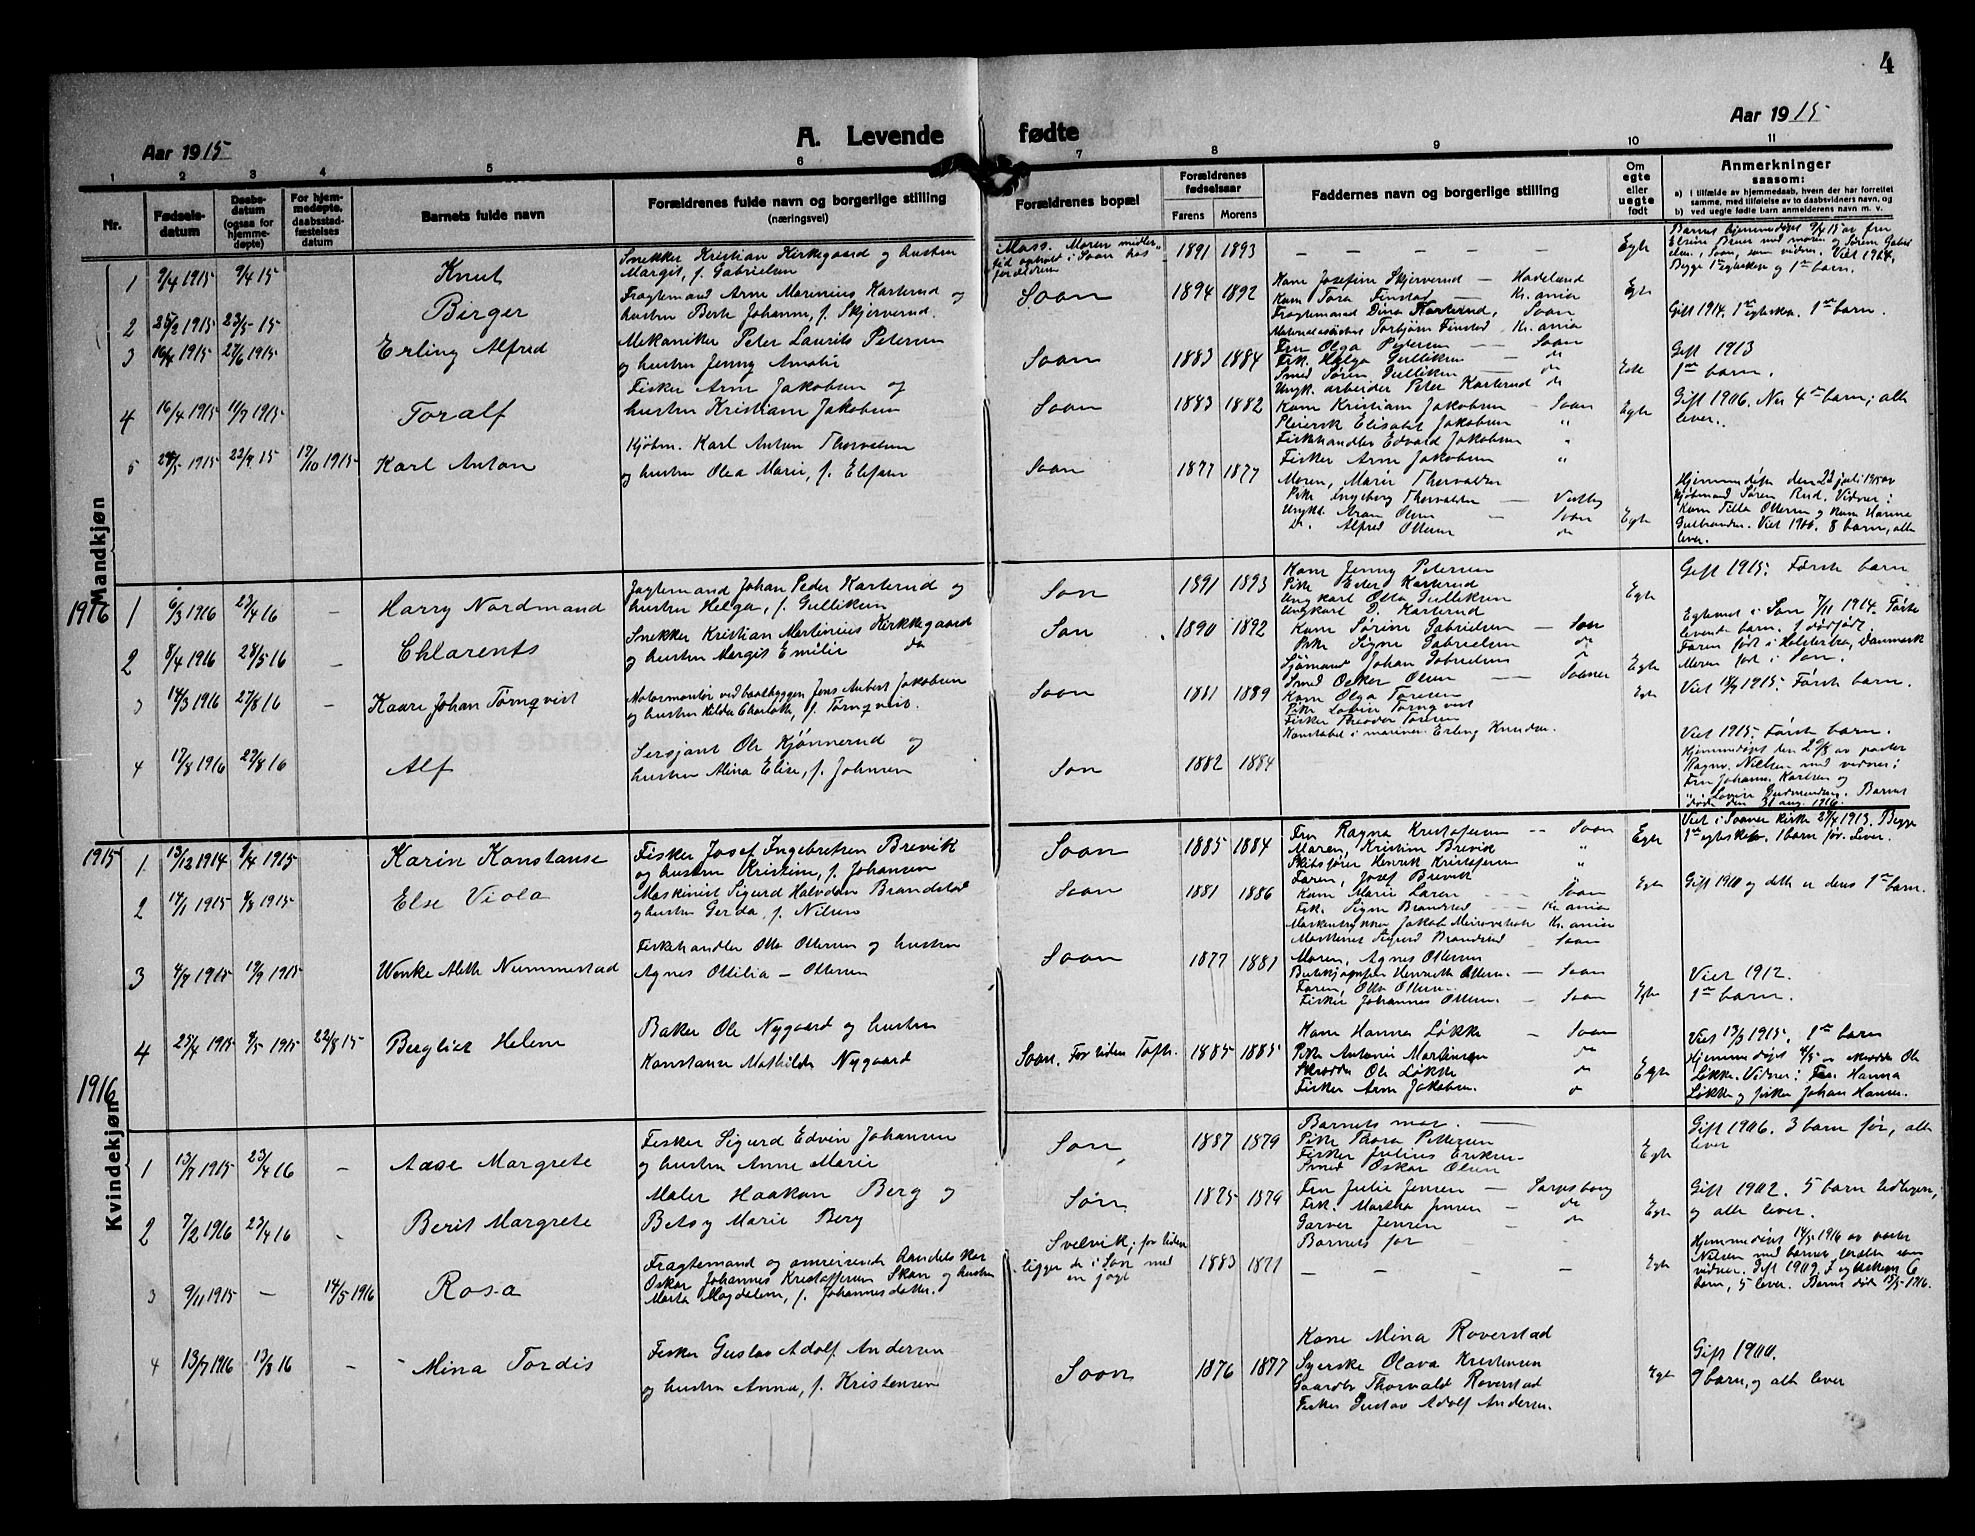 4
Aar 1915
A. Levende fødte
Aar 1915
1 2 3 4 5 6 7 8 9 10 11
Nr.
Fødsels-
datum
Daabs-
datum
(ogsaa for
hjemme-
døpte)
For hjem-
medøpte,
daabsstad-
fæstelses
datum
Barnets fulde navn
Forældrenes fulde navn og borgerlige stilling
(næringsvei)
Forældrenes bopæl
Forældrenes
fødselsaar
Farens Morens
Faddernes navn og borgerlige stilling
Om
egte
eller
uegte
født
Anmerkninger
saasom:
a) I tilfælde av hjemmedaab, hvem der har forrettet
samme, med tilføielse av to daabsvidners navn, og
b) ved uegte fødte barn anmelderens navn m. v.
Mandkjøn
1 9/4 1915 9/4 15 Knut
Snekker Kristian Kirkegaard og hustru
Margit, f. Gabrielsen
Moss. Moren midler-
tid ophold i Soon hos
forældrene
1891 1893
Egte
Begge 1ste egteskap og 1ste barn.
2 25/2 1915 23/5 15 Birger
Fragtemand Arne Marinius Karterud og
hustru Berte Johanne, f. Skjerverud.
Soon 1894 1892
Kone Josefine Skjerverud — Hadeland
Kone Tora Finstad — Kr.ania
Fragtemand Dina Karterud, Soon
Torbjørn Finstad — Kr.ania
Egte
Gift 1914. 1ste egteska. 1ste barn.
3 16/4 1915 27/6 1915 Erling Alfred
Mekaniker Peter Laurits Petersen
og hustru Jenny Amalie
Soon 1883 1884
Fru Olga Pedersen — Soon
Frk. Helga Gulliksen — do
Smed Søren Gulliksen — do
Ungk. arbeider Peter Karterud do
Egte
Gift 1913
1ste barn.
4 16/4 1915 11/7 1915 Toralf
Fisker Arne Jakobsen og
hustru Kristiane Jakobsen
Soon 1883 1882
Kone Kristiane Jakobsen — Soon
Pleiersk Elisabet Jakobsen "
Fiskhandler Edvald Jakobsen "
Fisker Arne Jakobsen "
Egte
Gift 1906. Nu 4de barn; alle
lever.
5 22/9 15 17/10 1915 Karl Anton
Kjøbm. Karl Anton Thorvalsen
og hustru Olea Marie, f. Elefsen
Soon 1877 1877
Moren, Marie Thorvaldsen
Pike Ingeborg Thorvaldsen — Vestby
Ungk. Aron Olsen — Soon
D. Alfred Ottersen do
Egte
Hjemmedøpt den 22 juli 1915 av
Kjøbmand Søren Rud. Vidner:
Kone Tilla Ottersen og Kone Hanna
Gulbrandsen. Viet 1900. 8 barn, alle
lever.
1916
1 6/3 1916 23/4 16 - Harry Nordmand
Jagtemand Johan Peder Karterud og
hustru Helga, f. Gulliksen
Son 1891 1893
Kone Jenny Petersen
Pike Ester Karterud
Ungkarl Otto Gulliksen
Ungkarl D. Karterud
Egte
Gift 1915. Første barn
2 8/4 1916 28/5 16 - Chlarents
Snekker Kristian Martinius Kirkkegaard
og hustru Margit Emilie do
Son 1890 1892
Kone Sørine Gabrielsen — Son
Pike Signe Gabrielsen do
Sjømand Johan Gabrielsen "
Smed Oskar Olsen — Sooner
Egte
Egteviet i Son 7/11 1914. Første
levende barn. 1 dødfødt.
Faren født i Holstebro, Danmark
Moren født i Son.
3 14/3 1916 27/8 16 - Kaare Johan Tørnqvist
Motormontør ved baatbyggeri Jens Anbert Jakobsen
og hustru Hilda Charlotte, f. Tørnqvist.
Soon 1881 1889
Kone Olga Toresen
Pike Lovise Tørnqvist
Fisker Theodor Toresen
Konstabel i marinen Erling Knudsen.
Egte
Viet 14/9 1915. Første barn.
4 17/8 1916 27/8 16 Alf
Sersjant Ole Kjønnerud og
hustru Alina Elise, f. Johnsen
Son 1882 1884
Viet 1915. Første barn.
Hjemmedøpt den 20/8 av pastor
Ragnv. Nielsen med vidner:
Fru Johanne Karlsen og
" Lovise Gudmundsen. Barnet
døde den 31 aug. 1916.
Kvindekjøn
1915
1 13/12 1914 9/4 1915 Karin Konstanse
Fisker Josef Ingebretsen Brevik
og hustru Kristine, f. Johansen
Soon 1885 1884
Fru Ragna Kristofersen — Soon
Moren, Kristine Brevik "
Skibsfører Henrik Kristofersen "
Faren, Josef Brevik
Egte
Viet i Sooner kirke 27/4 1913. Begge
1ste egteskab. 1 barn før. Lever.
2 17/1 1915 8/8 1915 Else Viola
Maskinist Sigurd Halvdan Brandstad
og hustru Gerda, f. Nilsen
Soon 1881 1886
Kone Marie Larsen Soon
Frk. Signe Brandstad — Kr.ania
Jakob Kr.ania
Maskinist Sigurd Brandstad — Soon
Egte
Gift 1910 og dette er deres 1ste barn.
3 4/7 1915 19/9 1915 Wenke Aleth Nummestad
Fiskehandler Otto Ottersen og hustru
Agnes Ottilia — Ottersen
Soon 1877 1881
Moren, Agnes Ottersen
Henriette Ottersen — Soon
Faren, Otto Ottersen
Fisker Johannes Ottersen — Soon
Egte
Viet 1912.
1ste barn.
4 25/4 1915 9/5 1915 22/8 15 Bergliot Helene
Baker Ole Nygaard og hustru
Konstanse Mathilde Nygaard
Soon. For tiden Tofte. 1885 1885
Kone Hanna Løkke — Soon
Pike Antonie Martinsen do
Skrædder Ole Løkke do
Fisker Arne Jakobsen. do
Egte
Viet 13/3 1915. 1ste barn
Hjemmedøpt 9/5 av skrædder Ole
Løkke. Vidner: Fru Hanna
Løkke og fisker Johan Hansen.
1916
1 13/7 1915 23/4 16 - Aase Margrete
Fisker Sigurd Edvin Johansen
og hustru Anne Marie
Son 1887 1879
Barnets mor. —
Pike Thora Pettersen
Fisker Julius Eriksen
Smed Oskar Olsen
Egte
Gift 1906. 3 barn før, alle
lever
2 7/2 1916 23/4 16 - Berit Margrete
Maler Haakon Berg og
Betsy Marie Berg
Søn 1875 1879
Fru Julie Jensen — Sarpsborg
Frk. Martha Jensen — do
Garver Jensen — do
Barnets far -
Egte
Gift 1902. 5 barn
og alle lever.
3 9/11 1915 - 14/5 1916 Rosa
Fragtemand og omreisende handelskar
Oskar Johannes Kristoffersen Skau og hustru
Marta Magdalene, f. Johannesdatter.
Svelvik; for tiden
ligger de i Son med
en jagt
1883 1871
Egte
Hjemmedøpt 14/5 1916 av pastor
Nielsen med barnets forældre som
vidner. Gift 1909. I egteskap 6
barn, 5 lever. Barnet død 15/5 1916.
4 13/7 1916 13/8 16 - Mina Tordis
Fisker Gustav Adolf Andersen
og hustru Anna, f. Kristensen
Soon 1876 1877
Kone Mina Roverstad
Syerske Olava Kristensen
Gaardbr. Thorvald Roverstad
Fisker Gustav Adolf Andersen.
Egte
Gift 1900.
9 barn, og alle lever